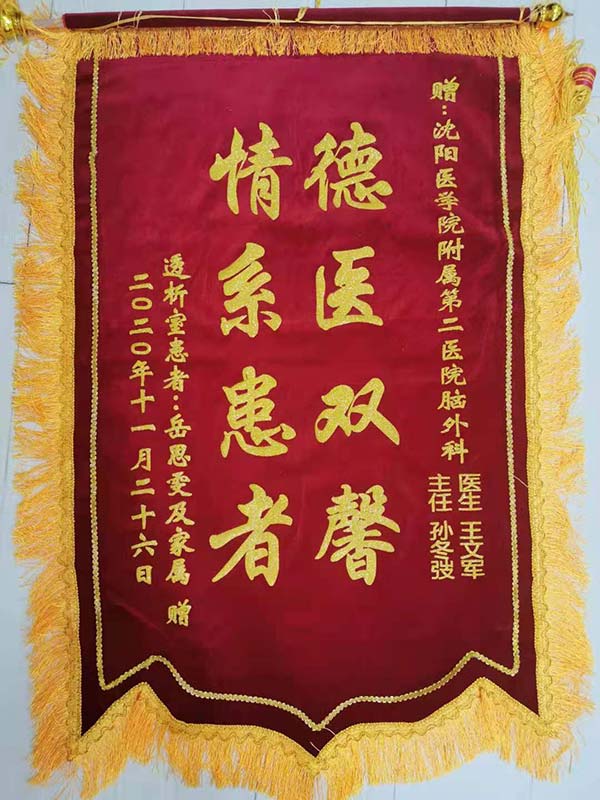 赠：沈阳医学院附属第二医院脑外科
医生 王文军
主任 孙冬弢
德医双馨
情系患者
透析室患者：岳思雯及家属 赠
二〇二〇年十一月二十六日